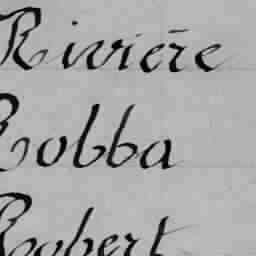 Rivière
Robba
Robert